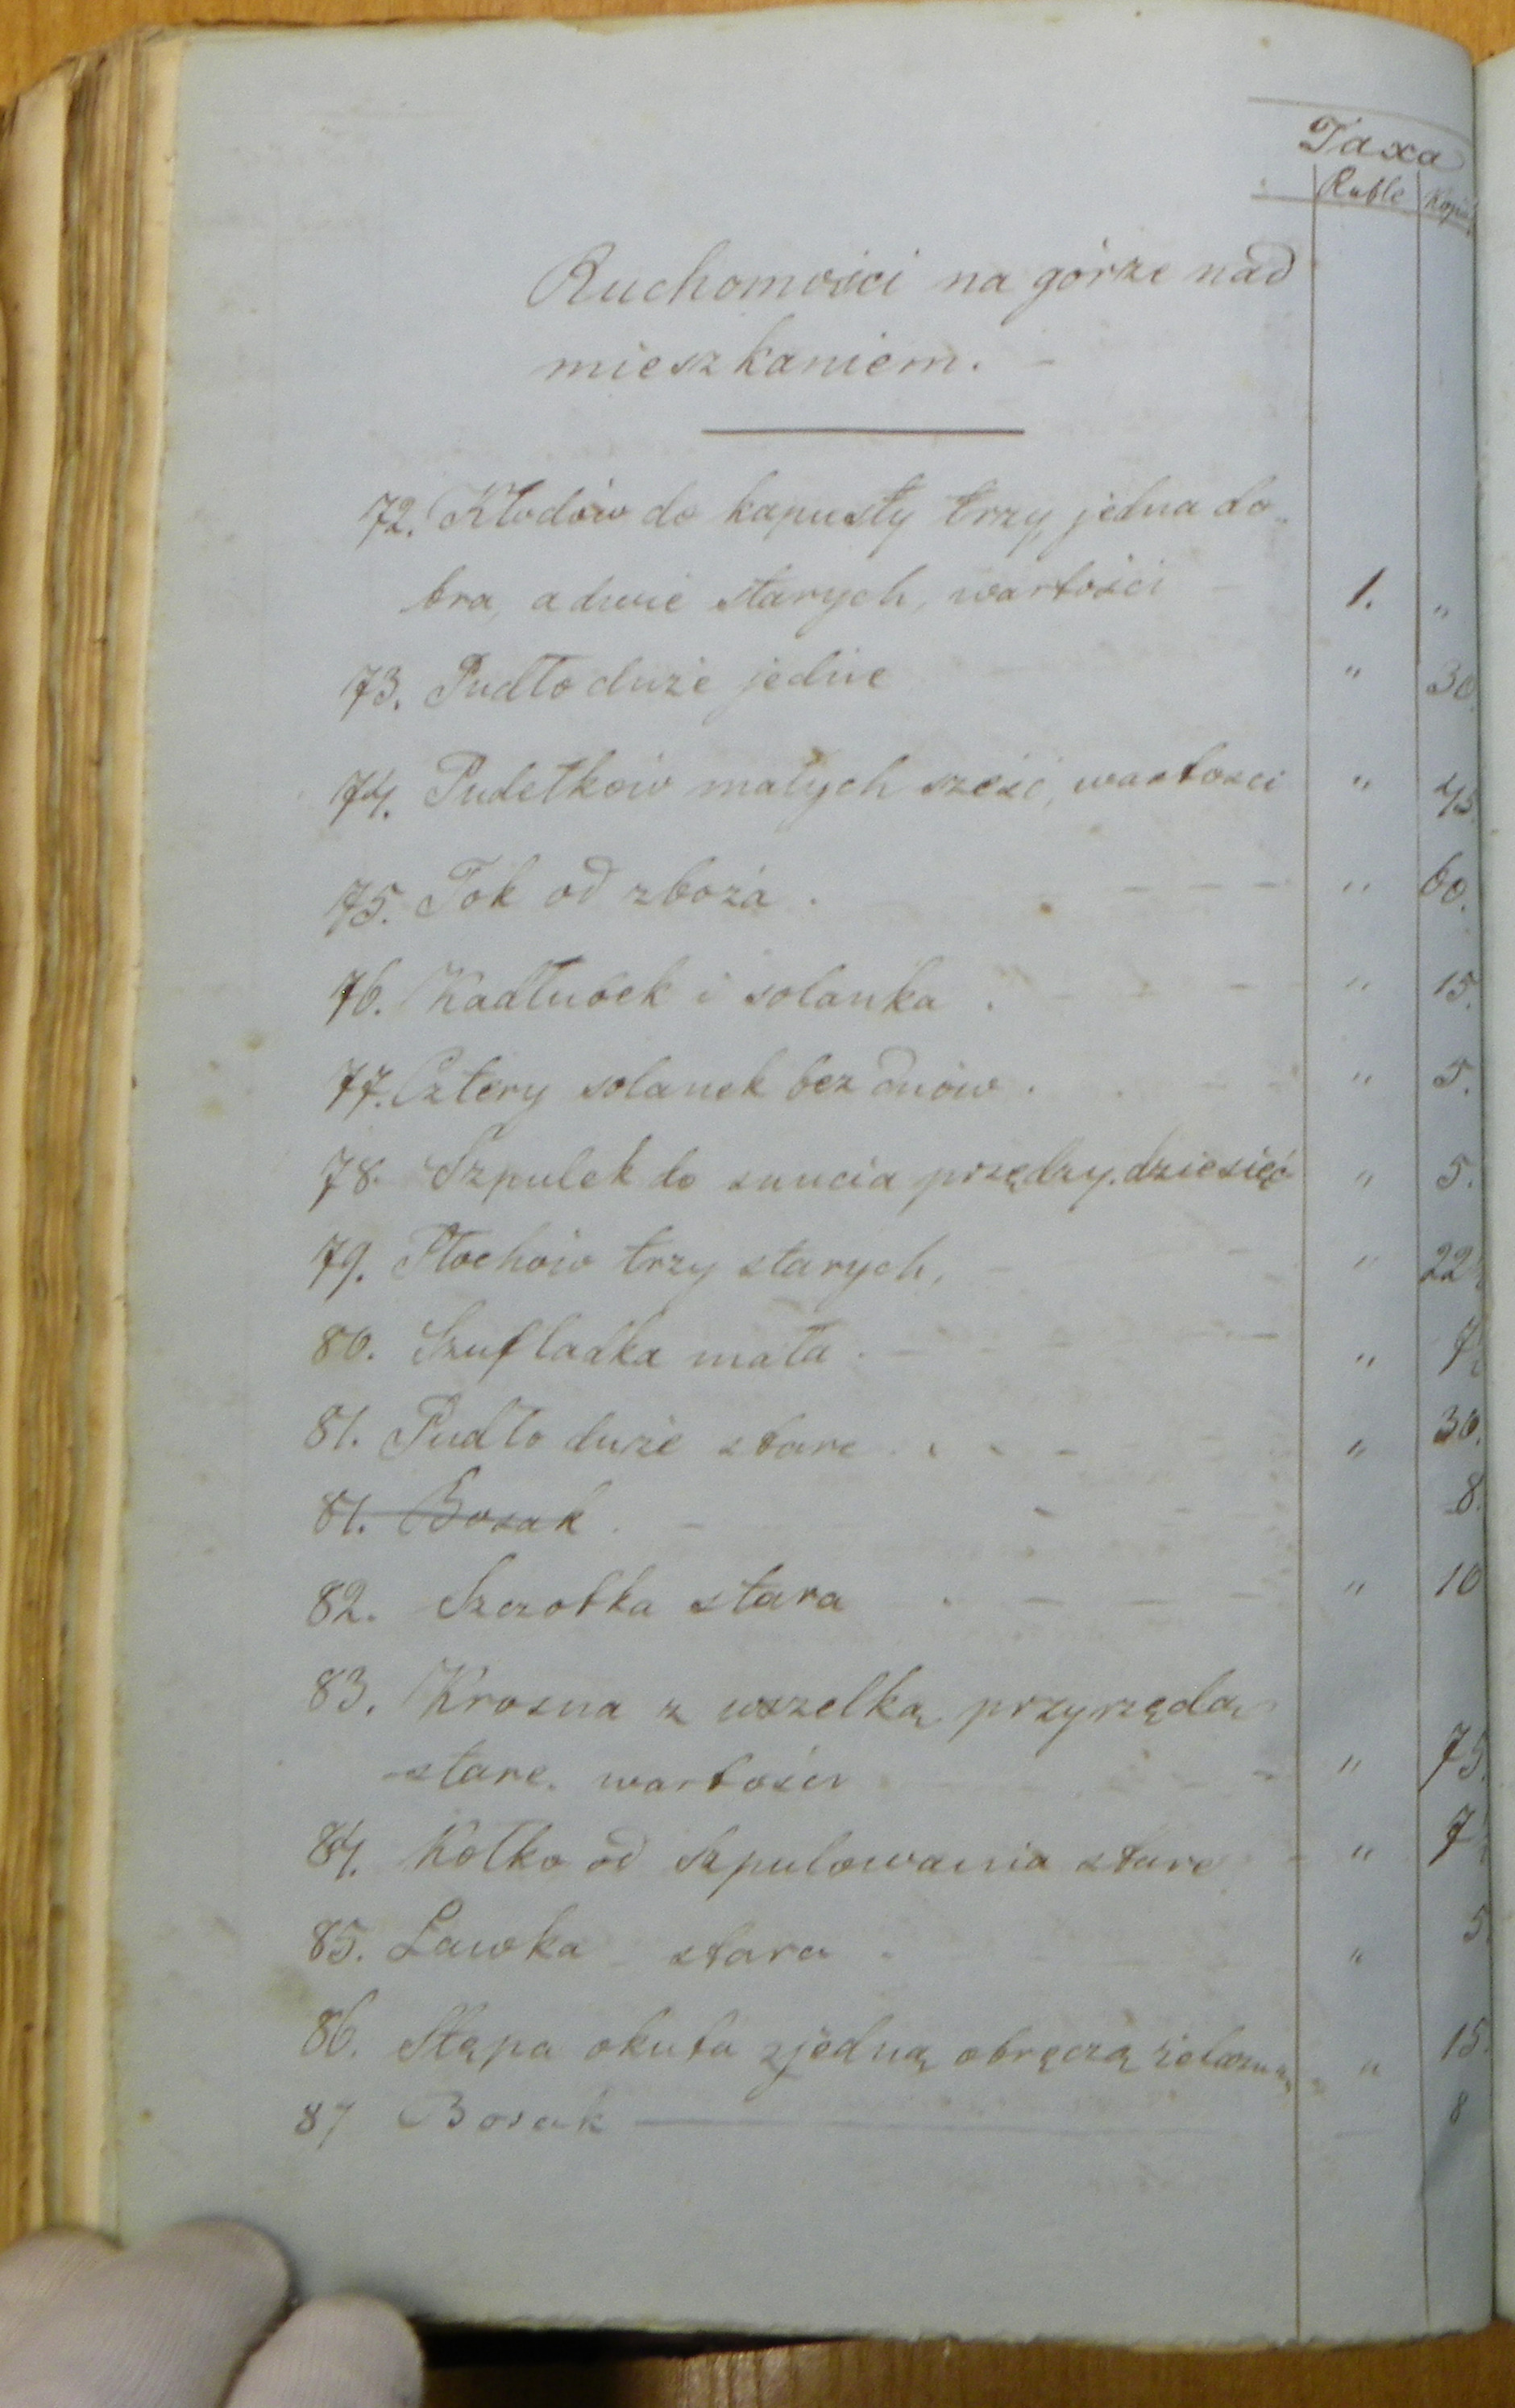 Taxa
Ruble Kopiej
Ruchomości na górze nad
mieszkaniem. -
72. Kłodów do kapusty trzy, jedna do„
bra, a dwie starych, wartości - 1. „
73. Pudło duże jedne „ 30.
74. Pudełków małych sześć, wartości „ 45.
75. Tok od zboża . - - - „ 60.
76. Kadłubek i solanka . - - - „ 15.
77. Cztery solanek bez dnów . „ 5.
78. Szpulek do snucia przędzy. dziesięć „ 5.
79. Płochów trzy starych, - „ 22½
80. Szufladka mała . - - - „ 7½
81. Pudło duże stare . . . - „ 30.
81. Bosak . - 8.
82. Szczotka stara . - - - „ 10
83. Krosna z wszelką przyrzędą
stare. wartości - „ 75.
84. Kołko od szpulowania stare - „ 7½
85. Ławka stara . „ 5.
86. Stąpa okuta z jedną obręczą żelazną „ 15.
87 Bosak — 8